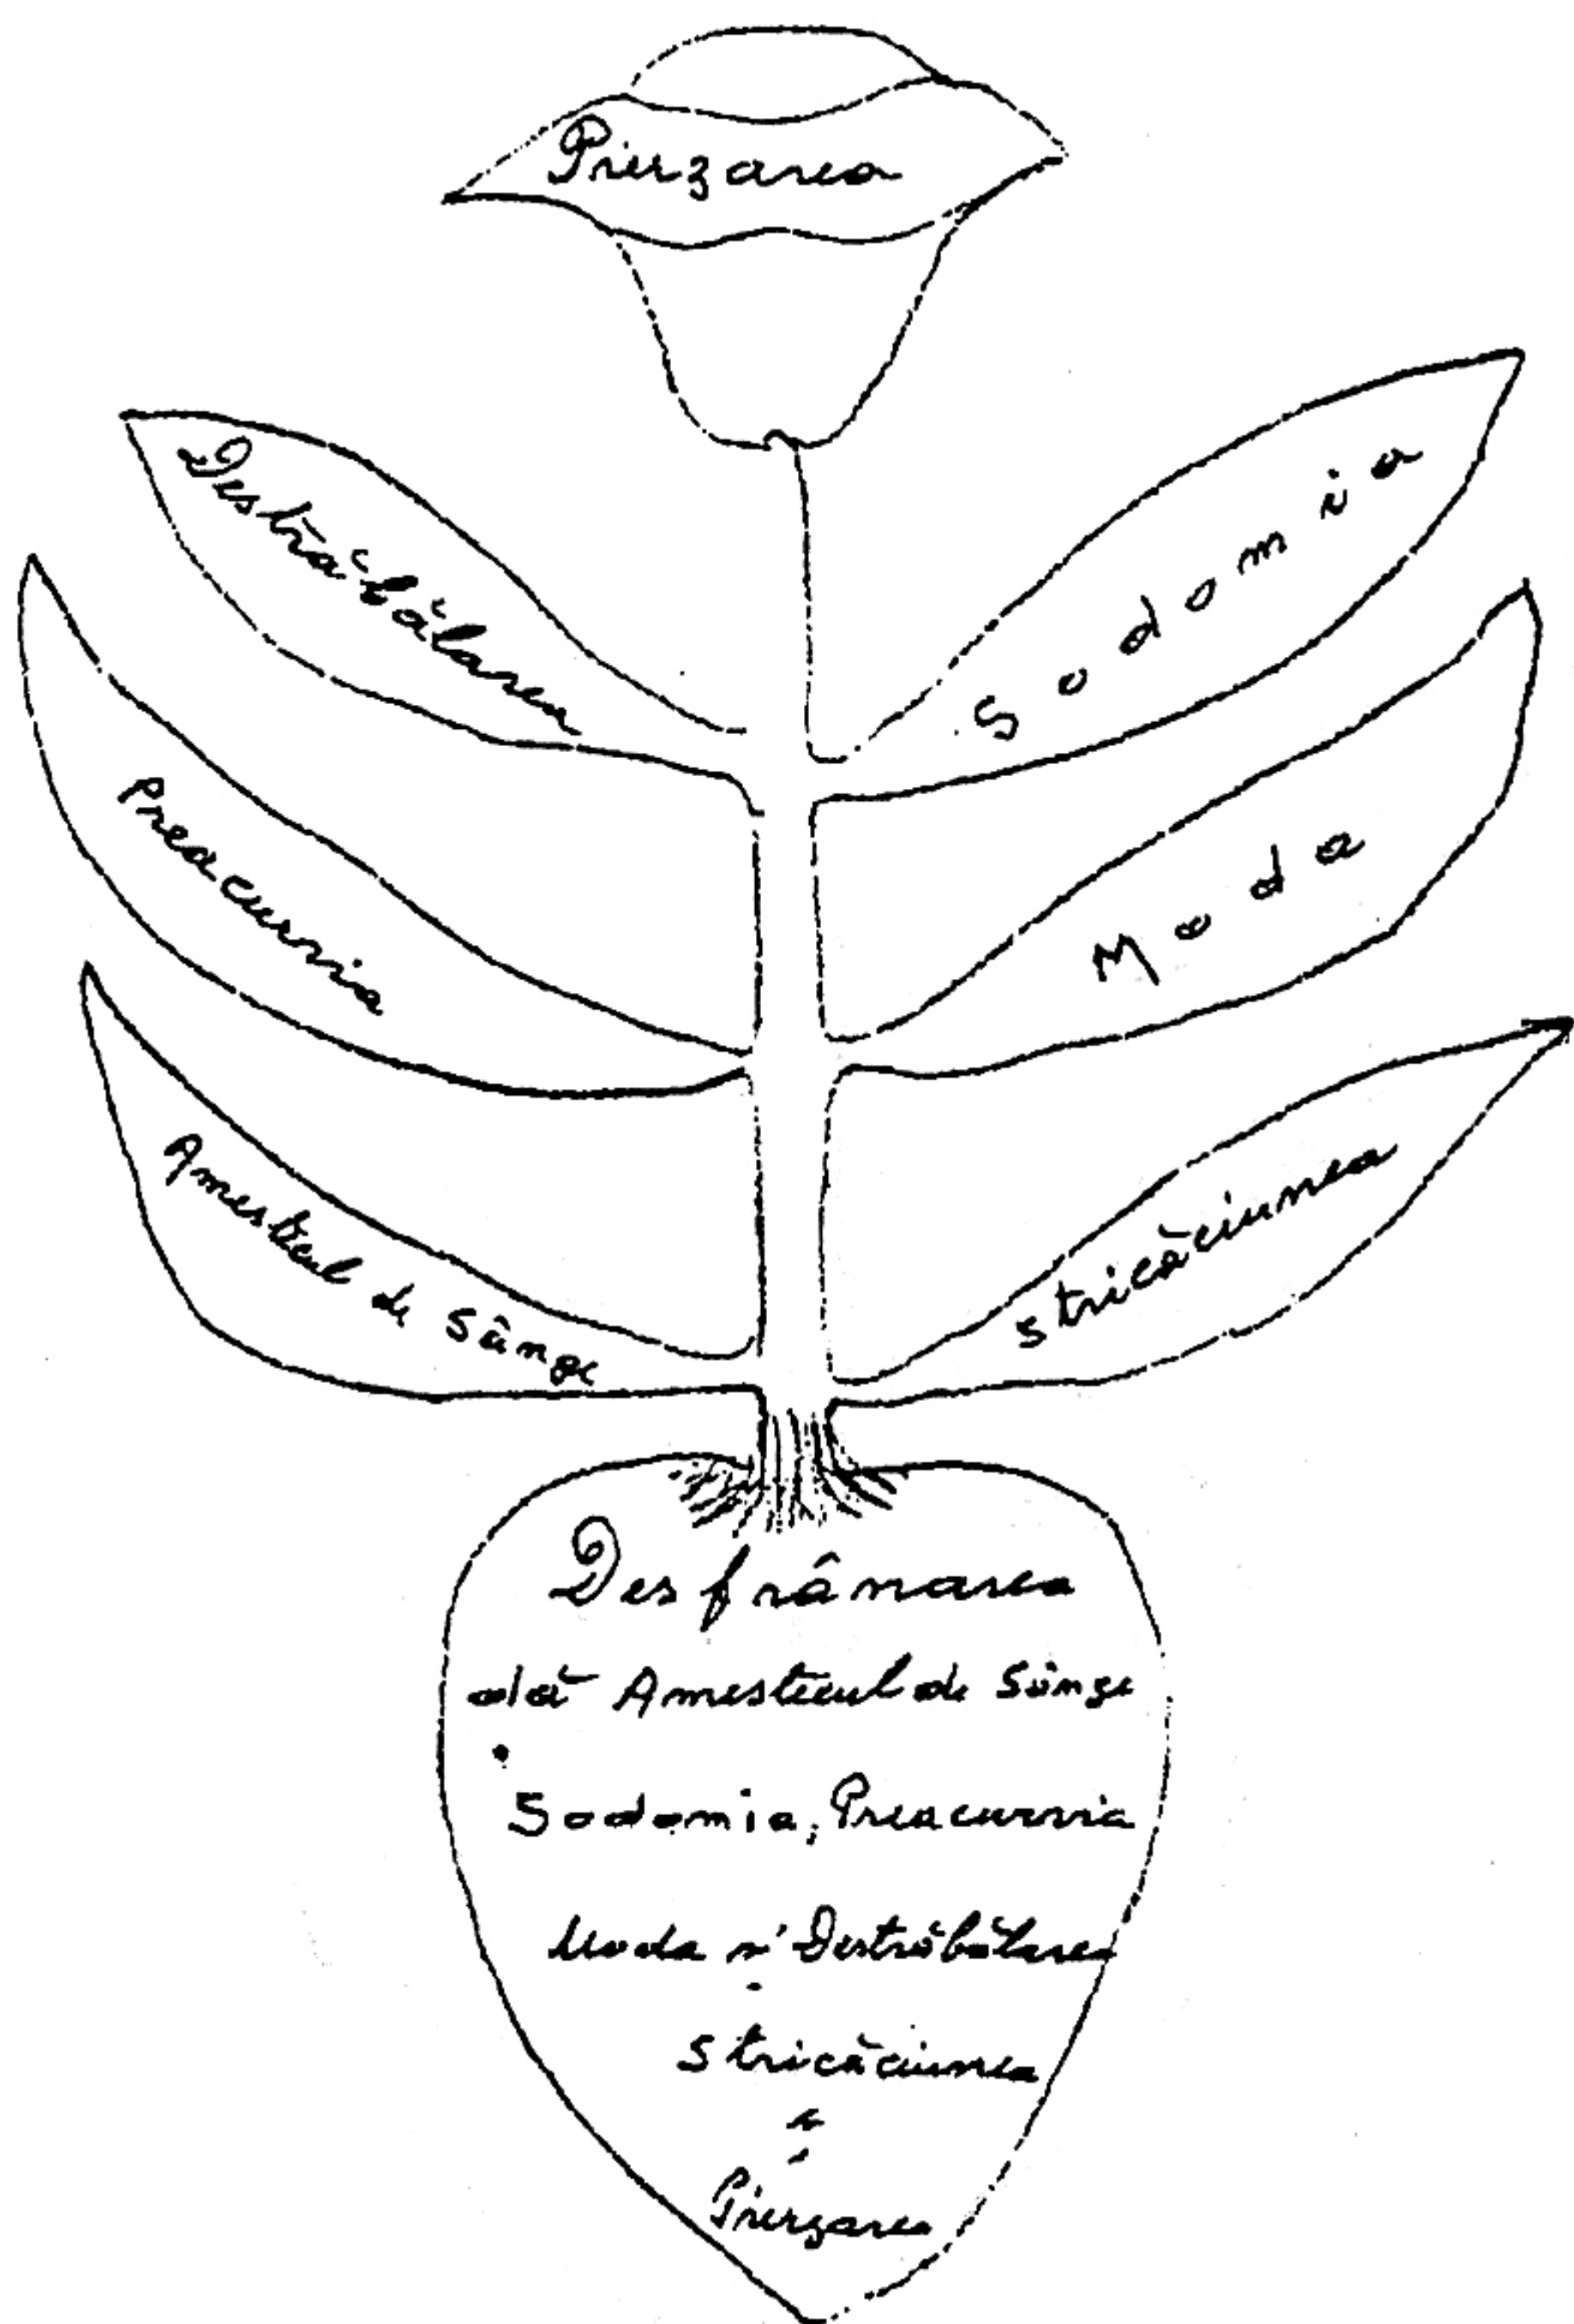 Pierzarea
Destrăbălarea
Sodomia
Preacurvia
Moda
Amestecul de Sânge
Stricăciunea
Desfrânarea
dă Amestecul de Sânge
Sodomia, Preacurvia
Moda și Destrăbălarea
Stricăciunea
și
Pierzarea